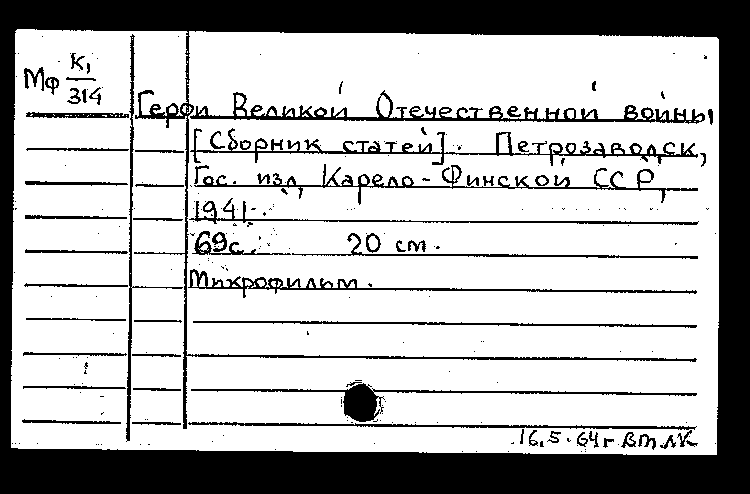 Мф К1/314
Герои Великой Отечественной войны
[Сборник статей]. Петрозаводск,
Гос. изд. Карело-Финской ССР,
1941.
69с. 20 см.
Микрофильм.
16.5.64г